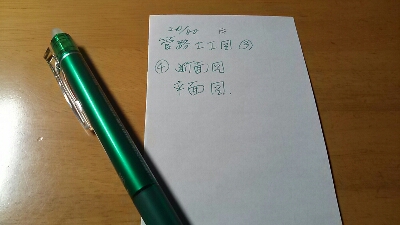 管路土工図 ③
④ 断面図
平面図